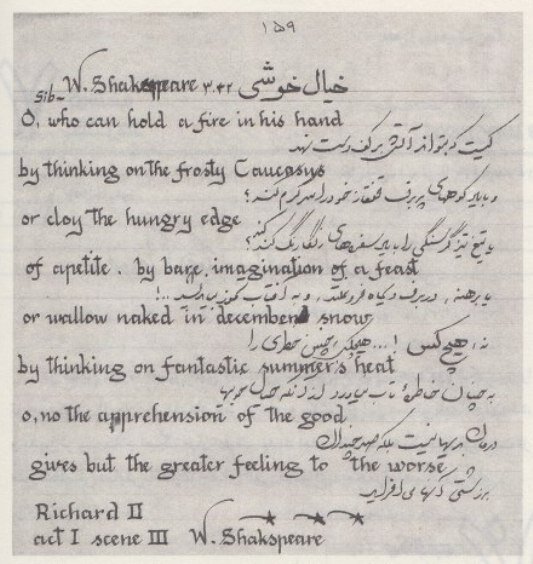 ۱۵۹
Sib- W. Shakespeare ۳.۴۲ خیال خوشی
O, who can hold a fire in his hand
کیست که بتواند آتش بر کف دست نهد
by thinking on the frosty Caucasus
و با یاد کوههای پر برف قفقاز خود را سرگرم کند؟
or cloy the hungry edge
یا تیغ تیز گرسنگی را با یاد سفره‌های رنگارنگ کند کند؟
of apetite. by bare imagination of a feast
یا برهنه در برف دیماه فرو غلتد و به آفتاب
or wallow naked in december snow
نه، هیچ کس! ... هیچکس چنین خطری را
by thinking on fantastic summer's heat
به چنان خاطرهٔ تاب نیاورد از آنکه خیال خوبیها
o, no the apprehension of the good
درمان بدیها نیست بلکه صد چندان
gives but the greater feeling to the worse
بر زشتی آنها می افزاید
Richard II
act I scene III W. Shakspeare